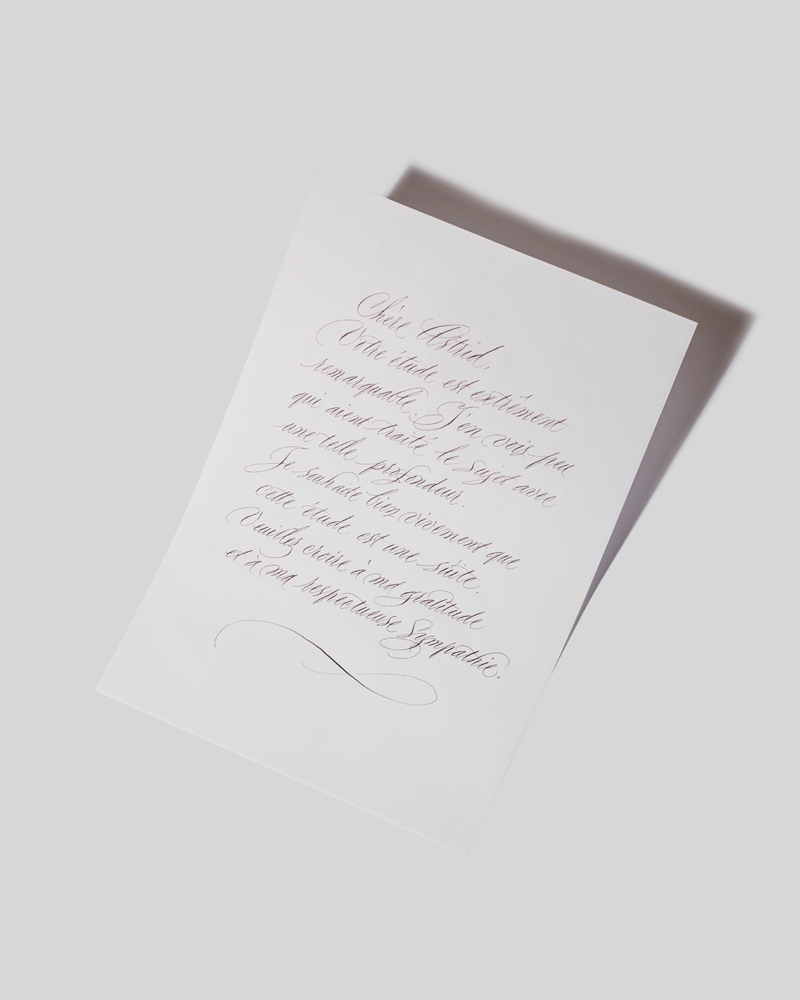 Chère Astrid,
Votre étude est extrêment
remarquable. J'en vois peu
qui aient traité le sujet avec
une telle profondeur.
Je souhaite bien vivement que
cette étude est une suite.
Veuillez croire à ma gratitude
et à ma respectueuse Sympathie.